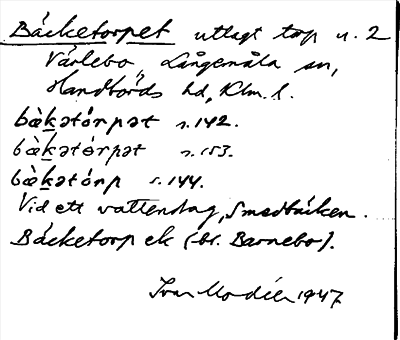 Bäcketorpet utlagt torp u. 2
Värlebo, Långemåla sn,
Handbörds hd, Klm. l.
bæ̀kətórpət s. 142.
bæ̀kətórpət s. 153.
bæ̀kətórp s. 144.
Vid ett vattendrag, Smedbäcken.
Bäcketorp ek (-br. Barnebo).
Ivar Modéer 1947